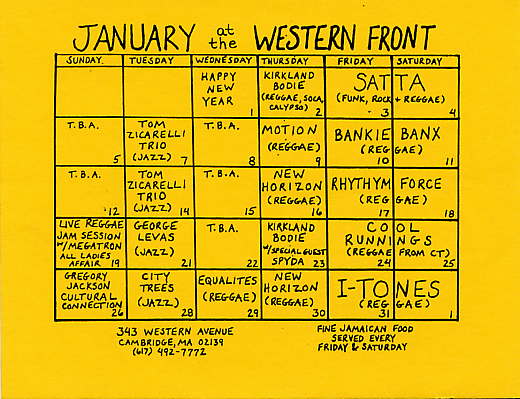 JANUARY at the WESTERN FRONT
SUNDAY. TUESDAY WEDNESDAY THURSDAY FRIDAY SATURDAY
HAPPY
NEW
YEAR
1
KIRKLAND
BODIE
(REGGAE, SOCA,
CALYPSO) 2
SATTA
(FUNK, ROCK + REGGAE)
3 4
T.B.A.
5
TOM
ZICARELLI
TRIO
(JAZZ) 7
T.B.A.
8
MOTION
(REGGAE)
9
BANKIE BANX
(REGGAE)
10 11
T.B.A.
12
TOM
ZICARELLI
TRIO
(JAZZ) 14
T.B.A.
15
NEW
HORIZON
(REGGAE)
16
RHYTHYM FORCE
(REGGAE)
17 18
LIVE REGGAE
JAM SESSION
W/MEGATRON
ALL LADIES
AFFAIR 19
GEORGE
LEVAS
(JAZZ)
21
T.B.A.
22
KIRKLAND
BODIE
W/SPECIAL GUEST
SPYDA 23
COOL
RUNNINGS
(REGGAE FROM CT)
24 25
GREGORY
JACKSON
CULTURAL
CONNECTION
26
CITY
TREES
(JAZZ)
28
EQUALITES
(REGGAE)
29
NEW
HORIZON
(REGGAE)
30
I-TONES
(REGGAE)
31 1
343 WESTERN AVENUE
CAMBRIDGE, MA 02139
(617) 492-7772
FINE JAMAICAN FOOD
SERVED EVERY
FRIDAY & SATURDAY